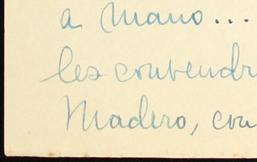 a mano...
les convendr
Madero, con